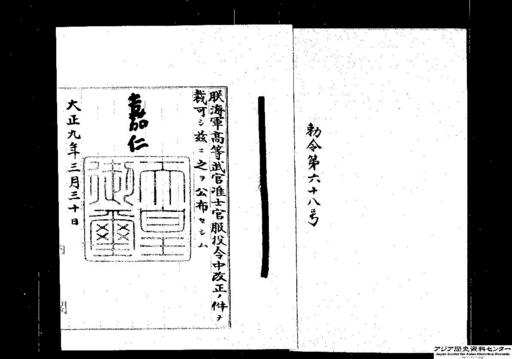 勅令第六十八号
朕海軍高等武官准士官服役令中改正ノ件ヲ
裁可シ茲ニ之ヲ公布セシム
嘉仁
天皇
御璽
大正九年三月三十日
内閣
アジア歴史資料センター
Japan Center for Asian Historical Records